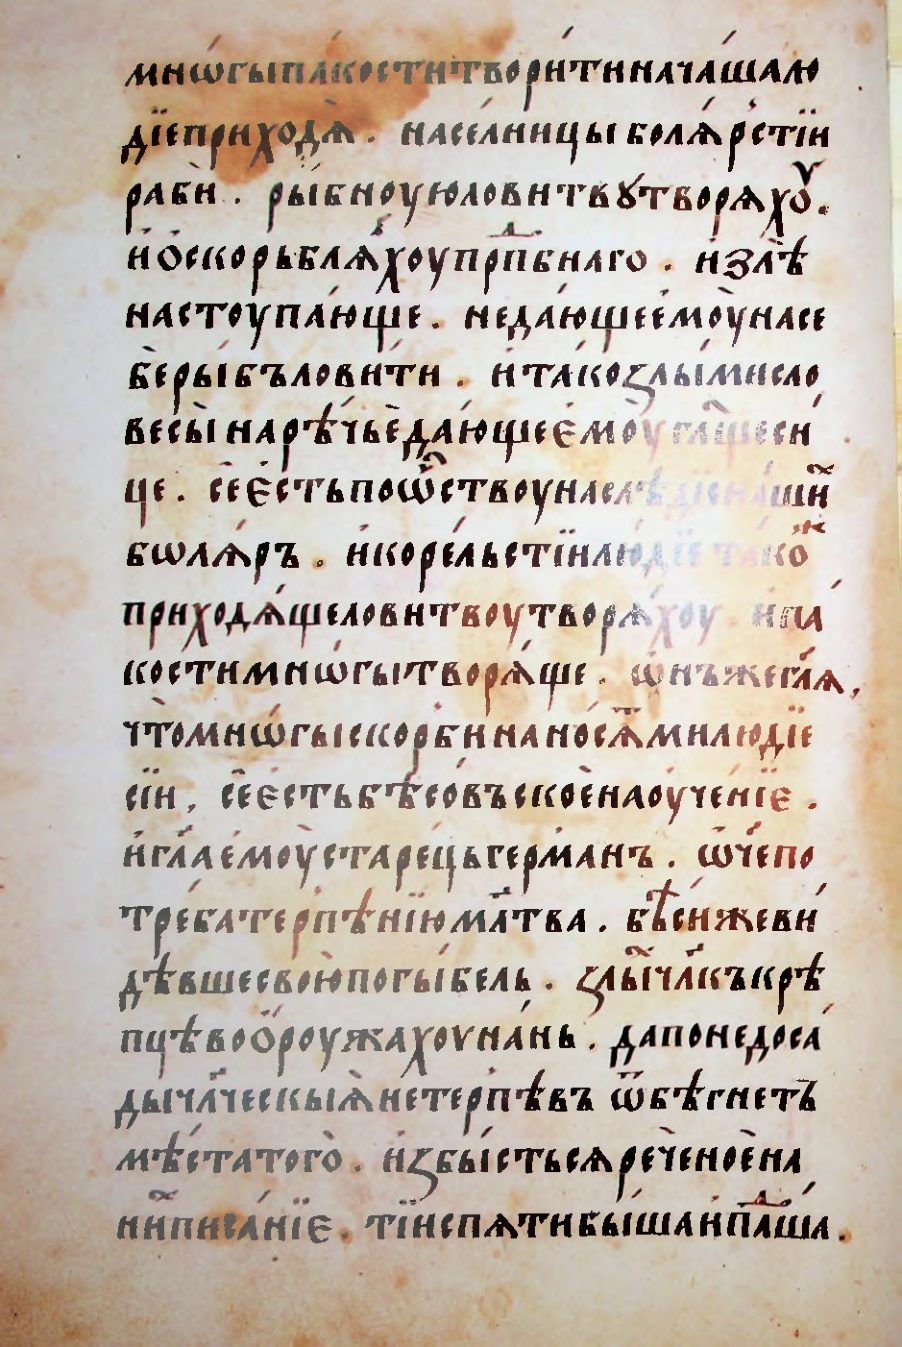 мнѡ́гы па́кости твори́ти нача́ша лю
дїе приходѧ̀ . насе́лницы болѧ́рстїи
раби̇ . ры́бноую ловитвꙋ творѧхоу .
и҆ ѻ҆скорьблѧ́хоу прпⷣбнаго . и҆ зл́ѣ
настоупа́юще . неда́юще е҆моу̀ на се
бѐ ры́бъ лови́ти . и҆ та́ко ꙁлы́ми сло
весы̀ нарѣ́чьѐ даю́ще е҆моу̀ гл҃ще си́
це . сѐ є҆́сть по ѿ҆ствоу наслѣдїе на́ши̑ⷯ
бѡлѧ́ръ . и҆ коре́льстїи лю́дїе та́коⷤ
приходѧ́ще ловитвоу творѧ́хоу . и҆ па́
кости мнѡ́гы творѧ́ще . ѡ҆́нъ же гл҃ѧ,
что̀ мнѡ́гы ско́рби нано́сѧⷮ ми лю́дїе
сїи , сѐ є҆́сть бѣсо́въскоѐ наоуче́нїе .
и҆ гл҃а е҆моу̀ ста́рець ге́рманъ . ѡ҆́ч҃е по
тре́ба терпѣ́нїю мл҃тва . бѣ́си же ви́
дѣвше свою̀ поги́бель . ꙁлы́ⷯ чл҃къ крѣ́
пцѣ во ѻ҆роужахоу на́нь . да поне доса́
ды чл҃ческыѧ̀ не терпѣ́въ ѿбѣгнетъ
мѣ́ста того̀ . и҆ ꙁбы́стьсѧ рече́ноѐ на
ниⷯ писа́нїе . тїи спѧти бы́ша и҆ паⷣша́ .